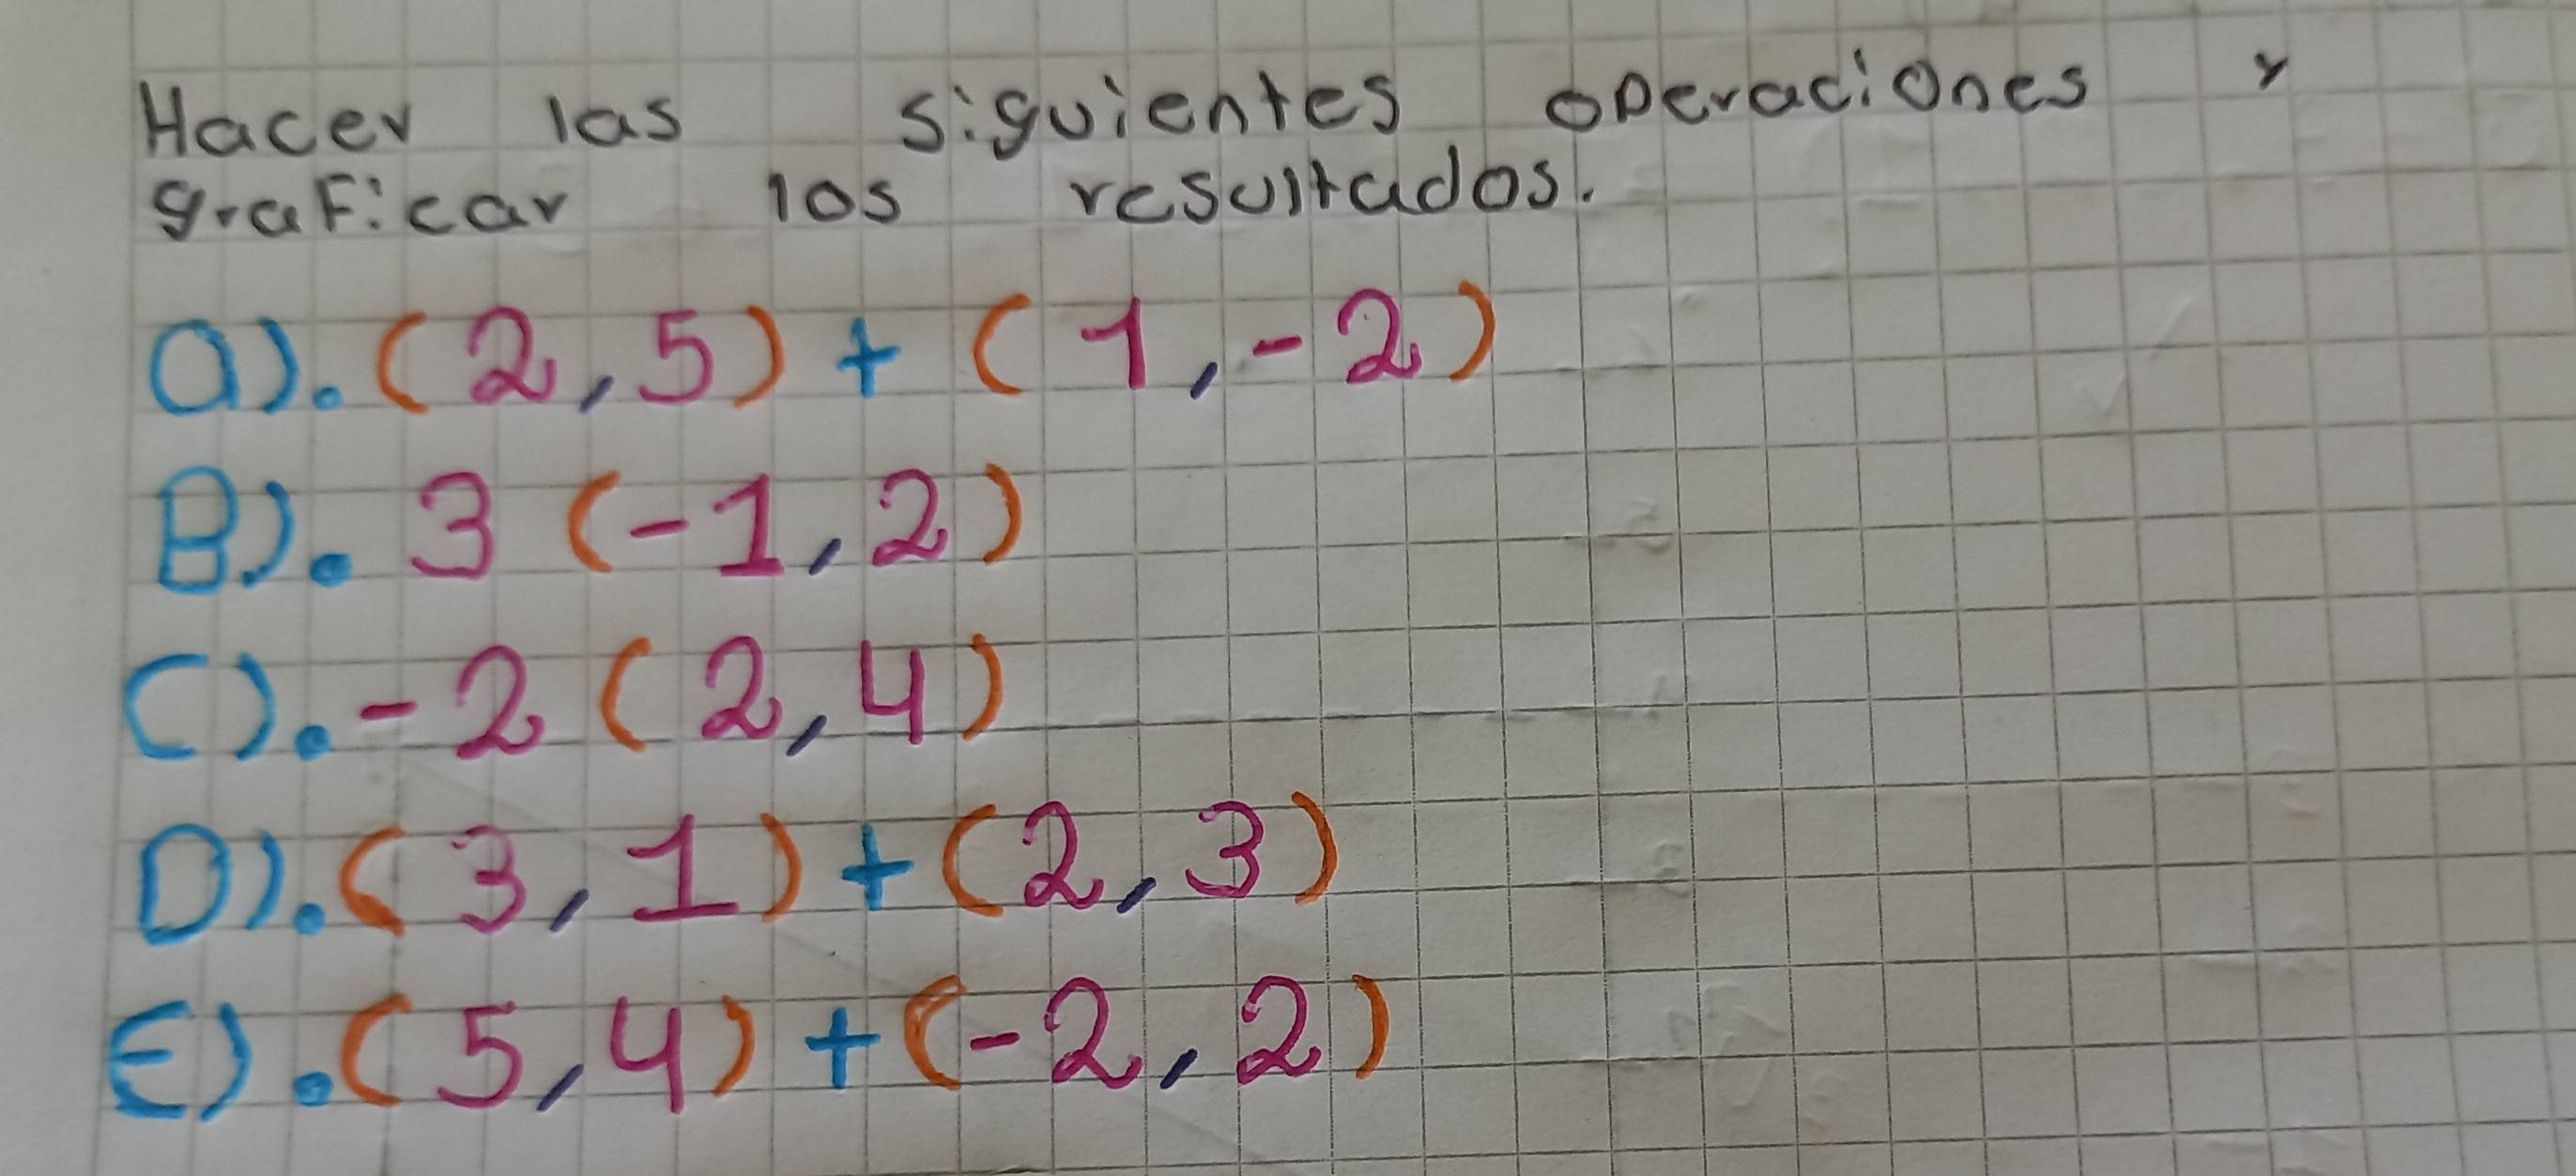 Hacer las siguientes operaciones y
graficar los resultados.
a). (2,5) + (1,-2)
B). 3 (-1,2)
C). -2 (2,4)
D). (3,1) + (2,3)
E). (5,4) + (-2,2)